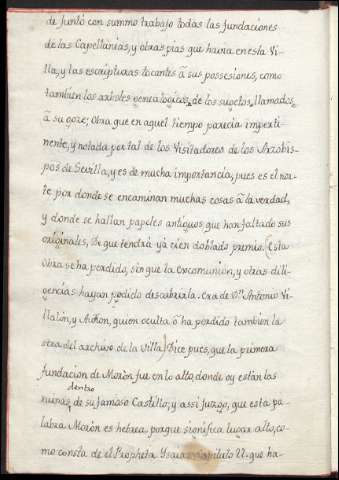 de juntó con summo trabajo todas las fundaciones
de las Capellanias, y obras pias que havia en esta Vi-
lla, y las escripturas tocantes â sus possesiones, como
tambien los arboles genealogicos, de los sugetos, llamados
â su goze; Obra que en aquel tiempo parecia imperti-
nente, y notada por tal de los Visitadores de los Arzobis-
pos de Sevilla, y es de mucha importancia, pues es el nor-
te por donde se encaminan muchas cosas â la verdad,
y donde se hallan papeles antiguos que han faltado sus
originales, De que tendrà ya cien doblado premio. (Esta
obra se ha perdido, sin que la Excomunion, y otras dili-
gencias hayan podido descubrirla. era de Dn. Antonio Vi-
llalon, y Auñon, quien oculta ô ha perdido tambien la
otra del archivo de la Villa) Dice pues, que la primera
fundacion de Moròn fue en lo alto, donde oy estàn las
dentro
ruinas de su famoso Castillo; y assi juzgo, que esta pa-
labra Moròn es hebrea, porque significa lugar alto, co-
mo consta de el Propheta Ysaias capitulo 22. que ha-